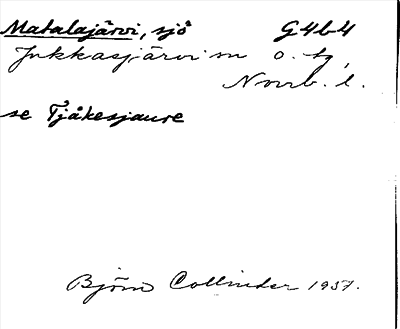 Matalajärvi, sjö G4b4
Jukkasjärvi sn o. tg,
Norrb. l.
se Tjåkesjaure
Björn Collinder 1937.